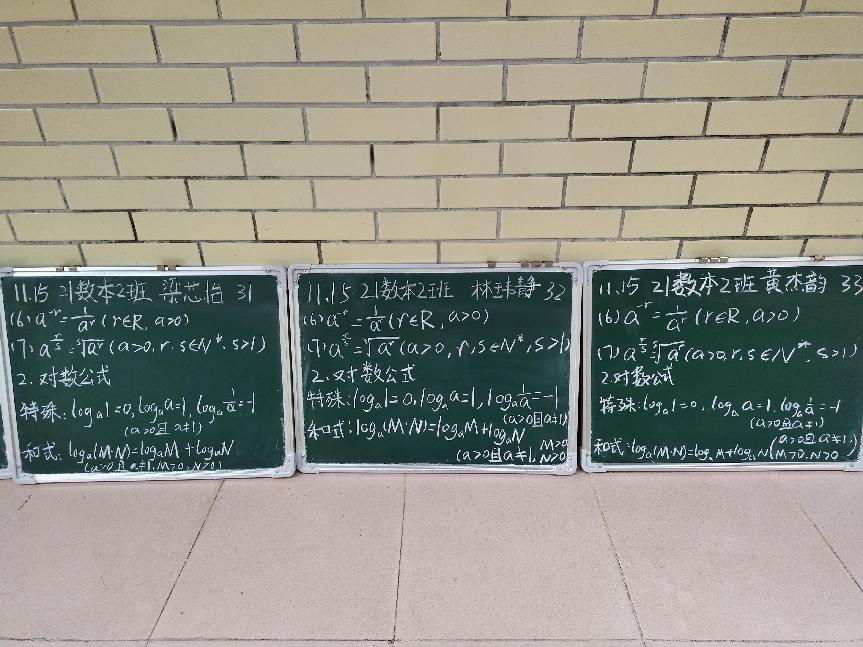 11.15 21数本2班 梁芯怡 31
(6) a⁻ʳ = 1/aʳ (r∈R, a>0)
(7) a^(r/s) = ˢ√aʳ (a>0, r, s∈N*, s>1)
2. 对数公式
特殊: logₐ1=0, logₐa=1, logₐ1/a=-1
(a>0且a≠1)
和式: logₐ(M·N)=logₐM+logₐN
(a>0且a≠1, M>0, N>0)
11.15 21数本2班 林玮静 32
(6) a⁻ʳ = 1/aʳ (r∈R, a>0)
(7) a^(r/s) = ˢ√aʳ (a>0, r, s∈N*, s>1)
2. 对数公式
特殊: logₐ1=0, logₐa=1, logₐ1/a=-1
(a>0且a≠1)
和式: logₐ(M·N)=logₐM+logₐN
(a>0且a≠1, M>0, N>0)
11.15 21数本2班 黄杰韵 33
(6) a⁻ʳ = 1/aʳ (r∈R, a>0)
(7) a^(r/s) = ˢ√aʳ (a>0, r, s∈N*, s>1)
2. 对数公式
特殊: logₐ1=0, logₐa=1, logₐ1/a=-1
(a>0且a≠1)
(a>0且a≠1,
和式: logₐ(M·N)=logₐM+logₐN (M>0, N>0)